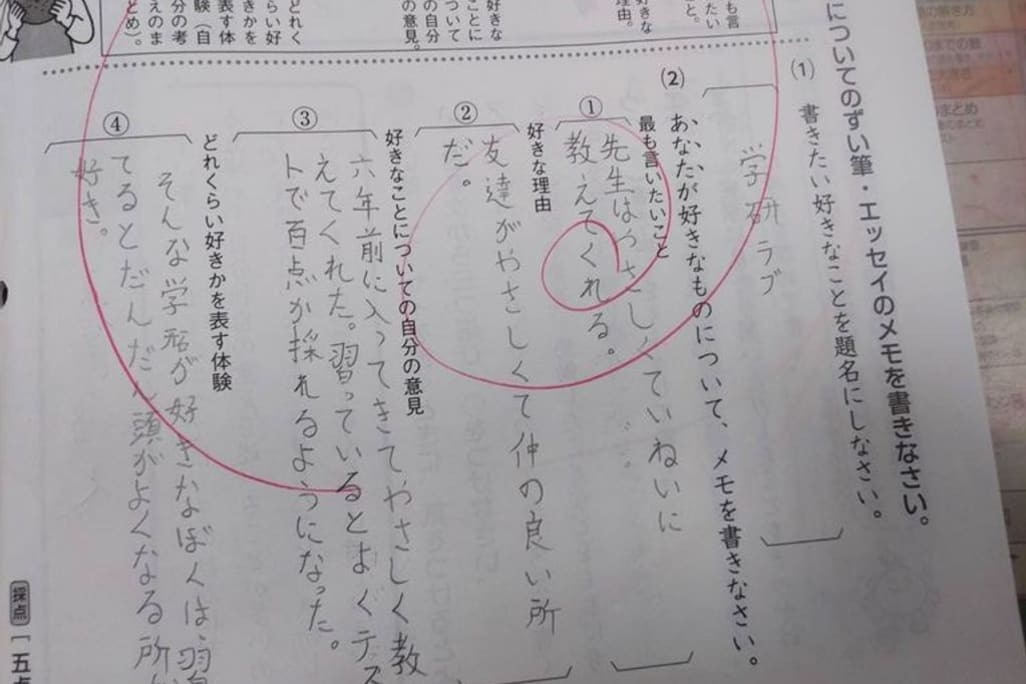 についてのずい筆・エッセイのメモを書きなさい。
⑴ 書きたい好きなことを題名にしなさい。
学研ラブ
⑵ あなたが好きなものについて、メモを書きなさい。
① 最も言いたいこと
先生はやさしくていねいに
教えてくれる。
② 好きな理由
友達がやさしくて仲の良い所
だ。
③ 好きなことについての自分の意見
六年前に入ってきてやさしく教
えてくれた。習っているとよくテス
トで百点が採れるようになった。
④ どれくらい好きかを表す体験
そんな学研が好きなぼくは、習
てるとだんだん頭がよくなる所が
好き。
も言
たい
と。
好きな
理由。
好きな
ことに
ついて
の自分
の意見。
どれく
らい好
きかを
表す体
験(自
分の考
えのま
とめ)。
採点
五点
の解き方
までの数
大きさ
のまとめ